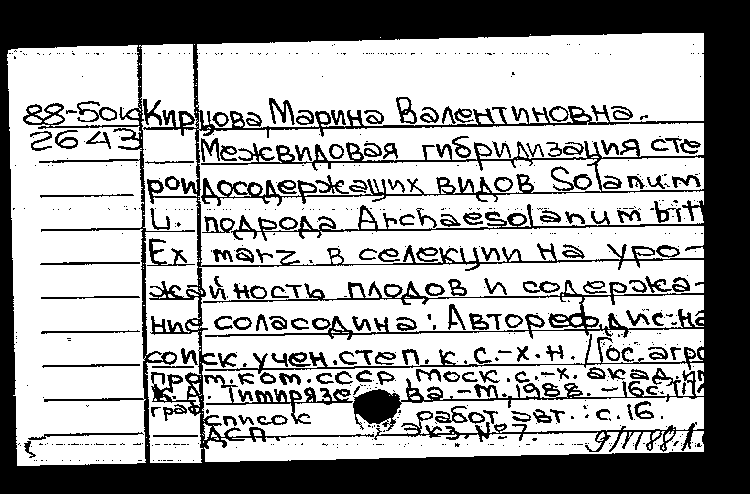 88-5око Кирцова, Марина Валентиновна.
2643
Межвидовая гибридизация сте
роидосодержащих видов Solanum
L. подрода Archaesolanum bitt
Ex marz. в селекции на уро-
жайность плодов и содержа-
ние соласодина: Автореф. дис. на
соиск. учен. степ. к. с.-х. н. / Гос. агро
пром. ком. СССР, Моск. с.-х. акад. им
К. А. Тимирязева. - М., 1988. - 16с.,
граф
список работ авт.: с. 16.
ДСП. Экз. № 7.